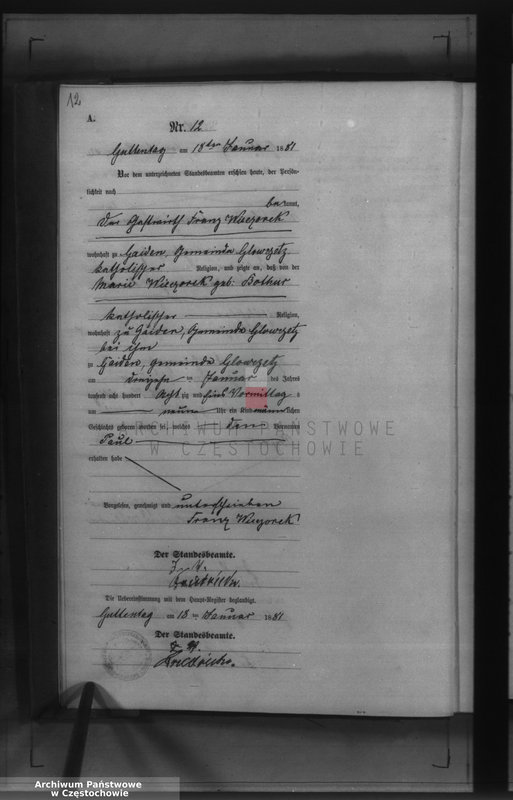 12
A.
Nr. 12
Guttentag am 18ten Januar 1881
Vor dem unterzeichneten Standesbeamten erschien heute, der Persön-
lichkeit nach
bekannt,
der Gastwirth Franz Wieczorek
wohnhaft zu Gaiden, Gemeinde Glowczetz
katholischer Religion, und zeigte an, daß von der
Marie Wieczorek geb: Bothur
katholischer Religion,
wohnhaft zu Gaiden, Gemeinde Glowczetz
bei ihm
zu Gaiden, Gemeinde Glowczetz
am dreizehn ten Januar des Jahres
tausend acht hundert Achtzig und Eins Vormittag s
um neun Uhr ein Kind männlichen
Geschlechts geboren worden sei, welches den Vornamen
Paul
erhalten habe
ARCHIWUM PAŃSTWOWE
W CZĘSTOCHOWIE
Vorgelesen, genehmigt und unterschrieben
Franz Wieczorek
Der Standesbeamte.
J. V.
Friedrichs.
Die Uebereinstimmung mit dem Haupt-Register beglaubigt.
Guttentag am 18 ten Januar 1881
Der Standesbeamte.
J. V.
Friedrichs.
Archiwum Państwowe
w Częstochowie